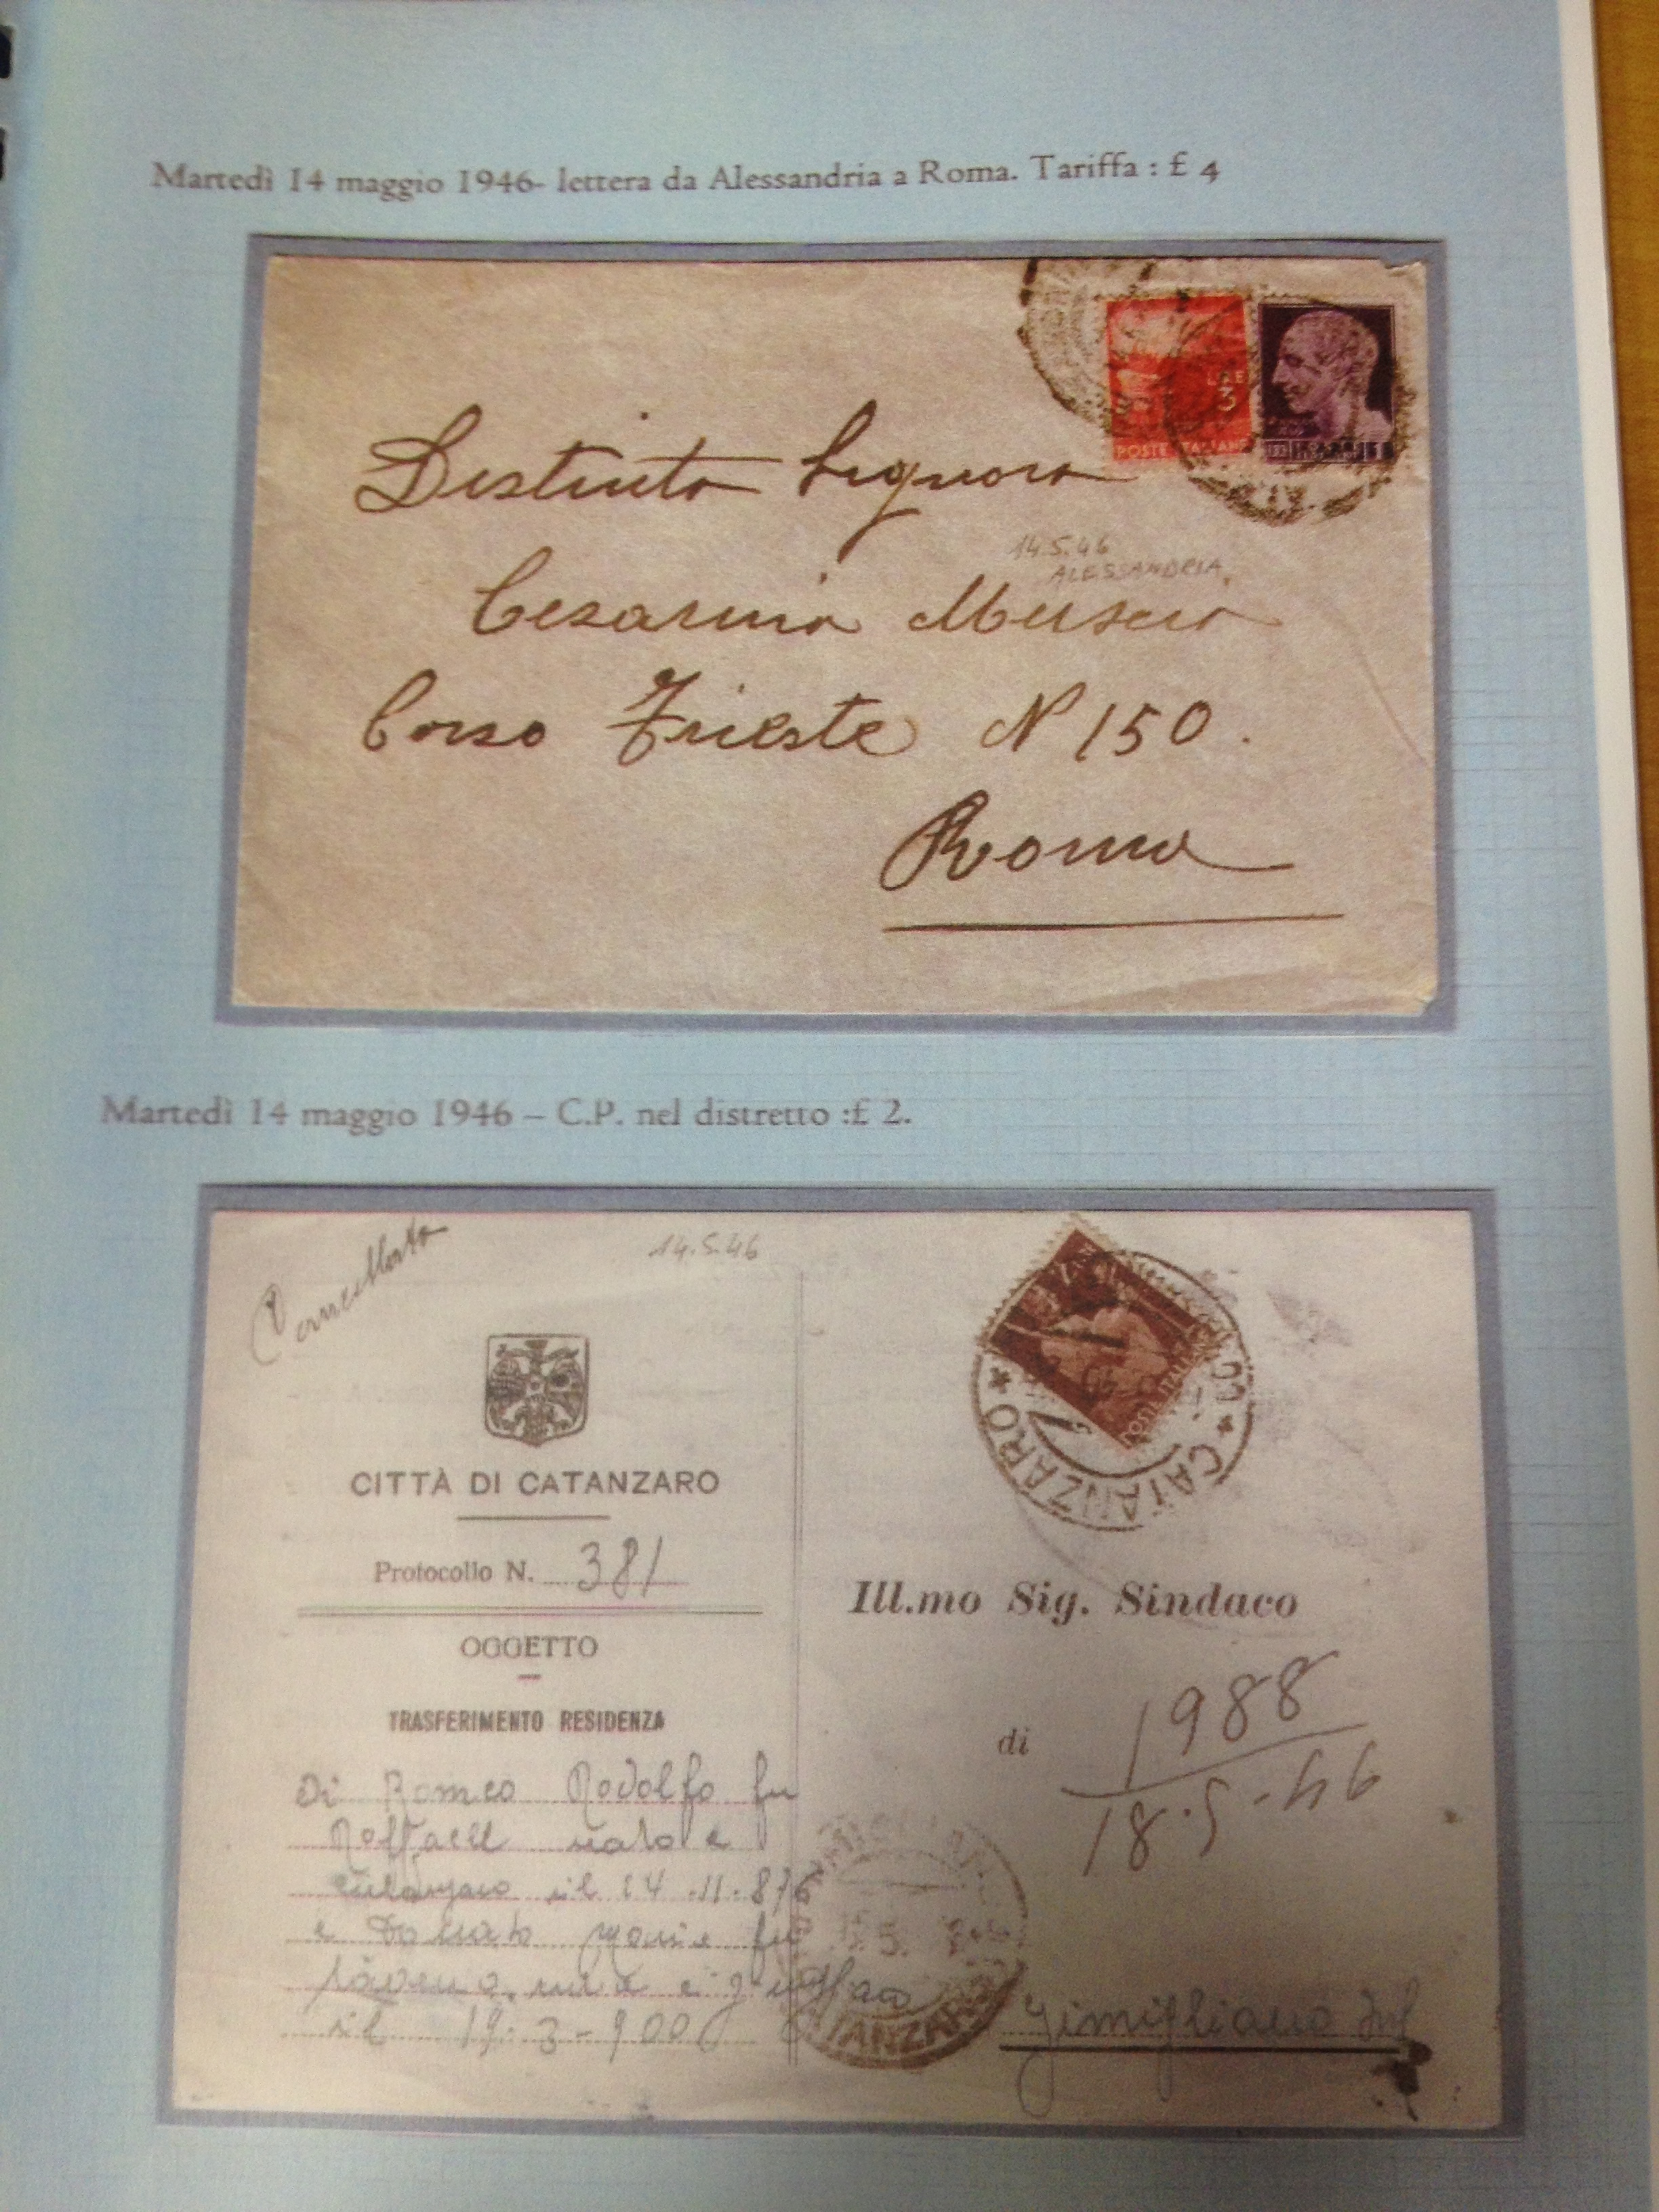 Martedì 14 maggio 1946- lettera da Alessandria a Roma. Tariffa : £ 4
LIRE
3
POSTE ITALIANE
Distinta Signora
14.5.46
ALESSANDRIA
Cesarina
Corso Trieste N 150.
Roma
Martedì 14 maggio 1946 – C.P. nel distretto :£ 2.
14.5.46
CITTÀ DI CATANZARO
Protocollo N. 381
OGGETTO
TRASFERIMENTO RESIDENZA
Di Romeo Rodolfo fu
nato a
il 14.11.876
e Donato fu
il 19-3-900
* CATANZARO *
Ill.mo Sig. Sindaco
di
1988
18.5-46
Gimigliano